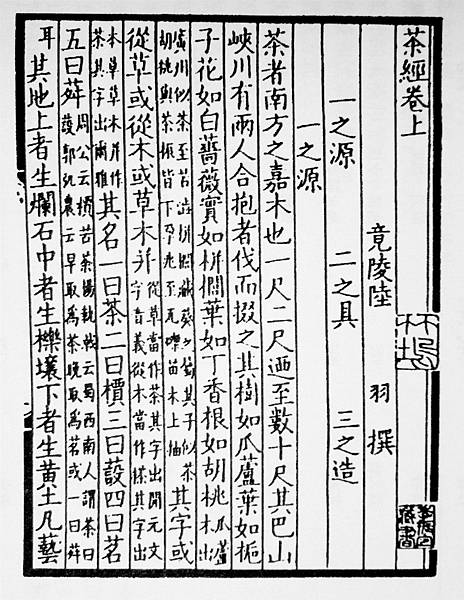 茶經卷上
竟陵陸 羽 撰
一之源 二之具 三之造
一之源
茶者南方之嘉木也一尺二尺迺至數十尺其巴山
峽川有兩人合抱者伐而掇之其樹如瓜蘆葉如梔
子花如白薔薇實如栟櫚葉如丁香根如胡桃瓜蘆木出
廣州似茶至苦澁栟櫚蒲葵之屬其子似茶胡桃與茶根皆下孕兆至瓦礫苗木上抽其字或
從草或從木或草木并從草當作茶其字出開元文字音義從木當作㮨其字出
本草草木并作荼其字出爾雅其名一曰茶二曰檟三曰蔎四曰茗
五曰荈周公云檟苦荼揚執戟云蜀西南人謂茶曰蔎郭弘農云早取爲茶晚取爲茗或一曰荈
耳其地上者生爛石中者生櫟壤下者生黄土凡藝
藏書